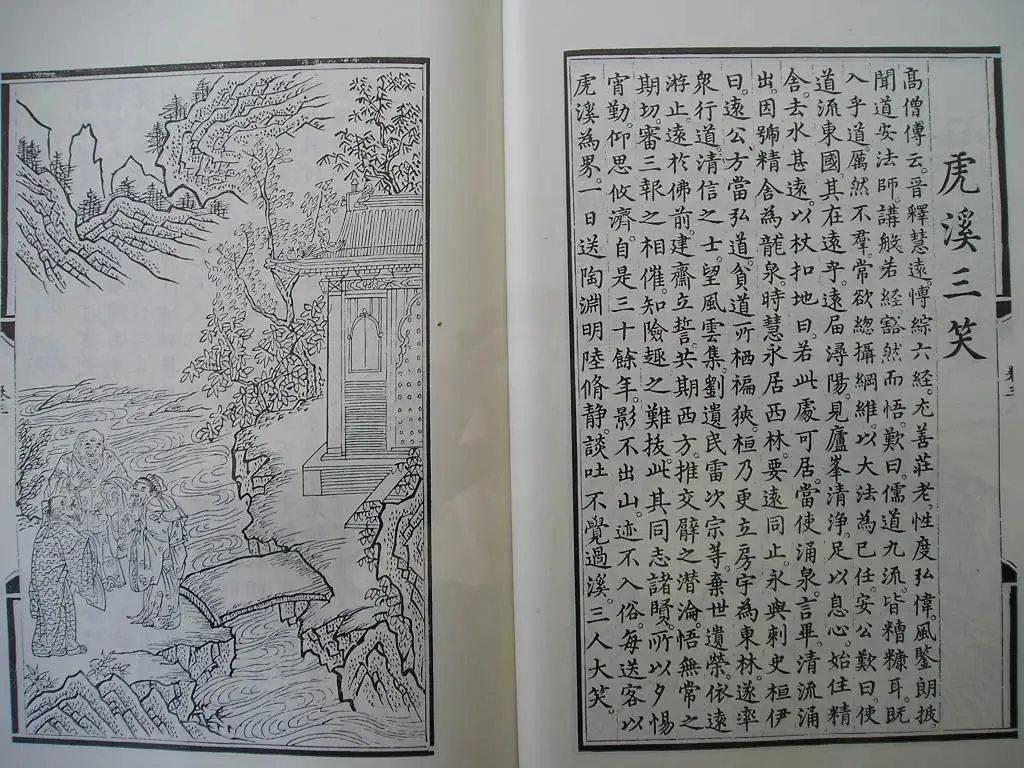 虎溪三笑
高僧傳云。晉釋慧遠。博綜六經。尤善莊老。性度弘偉。風鑒朗拔。
聞道安法師。講般若經。豁然而悟。歎曰。儒道九流。皆糟糠耳。既
入乎道。厲然不羣。常欲緫攝綱維。以大法為己任。安公歎曰。使
道流東國。其在遠乎。遠届潯陽。見廬峯清淨。足以息心。始住精
舍。去水甚遠。以杖扣地曰。若此處可居。當使涌泉。言畢。清流涌
出。因號精舍為龍泉。時慧永居西林。要遠同止。永與刺史桓伊
曰。遠公方當弘道。貧道所栖褊狹。桓乃更立房宇為東林。遂率
衆行道。清信之士。望風雲集。劉遺民雷次宗等。棄世遺榮。依遠
游止。遠於佛前。建齋立誓。共期西方。推交臂之潜淪。悟無常之
期切。審三報之相催。知險趣之難拔。此其同志諸賢。所以夕惕
宵勤。仰思攸濟。自是三十餘年。影不出山。迹不入俗。每送客以
虎溪為界。一日送陶淵明陸脩静。談吐不覺過溪。三人大笑。
卷三